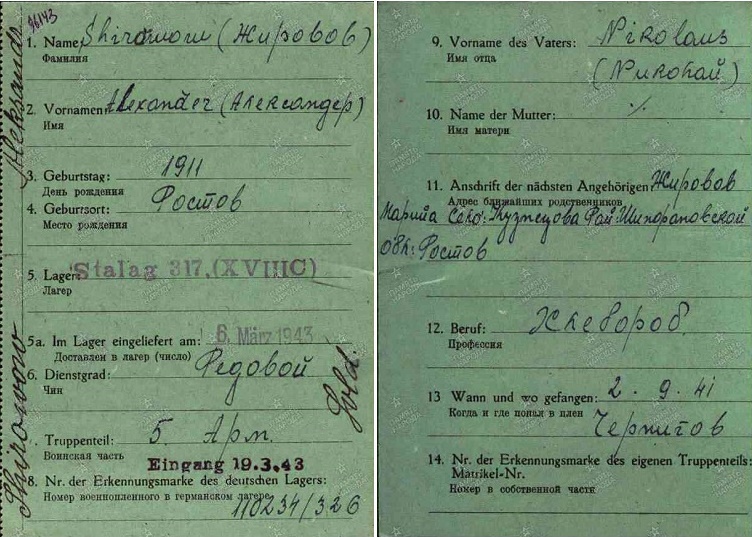 96143
1. Name: Shirowow (Жировов)
Фамилия
2. Vornamen: Alexander (Александер)
Имя
3. Geburtstag: 1911
День рождения
4. Geburtsort: Ростов
Место рождения
5. Lager: Stalag 317 (XVIIIC)
Лагер
5a. Im Lager eingeliefert am: 6. März 1943
Доставлен в лагер (число)
6. Dienstgrad: Редовой
Чин
Sold.
. Truppenteil: 5. Арм.
Воинская часть
Eingang 19.3.43
8. Nr. der Erkennungsmarke des deutschen Lagers:
Номер военнопленного в германском лагере
110234/326
9. Vorname des Vaters: Nikolaus
Имя отца
(Николай)
10. Name der Mutter: ⁒
Имя матери
11. Anschrift der nächsten Angehörigen Жировов
Адрес ближайших родственников
Мария Село: Кузнецова Рай:
Обл: Ростов
12. Beruf:
Профессия
13 Wann und wo gefangen: 2. 9. 41
Когда и где попал в плен
Чернигов
14. Nr. der Erkennungsmarke des eigenen Truppenteils:
Matrikel-Nr.
Номер в собственной части
ПАМЯТЬ НАРОДА